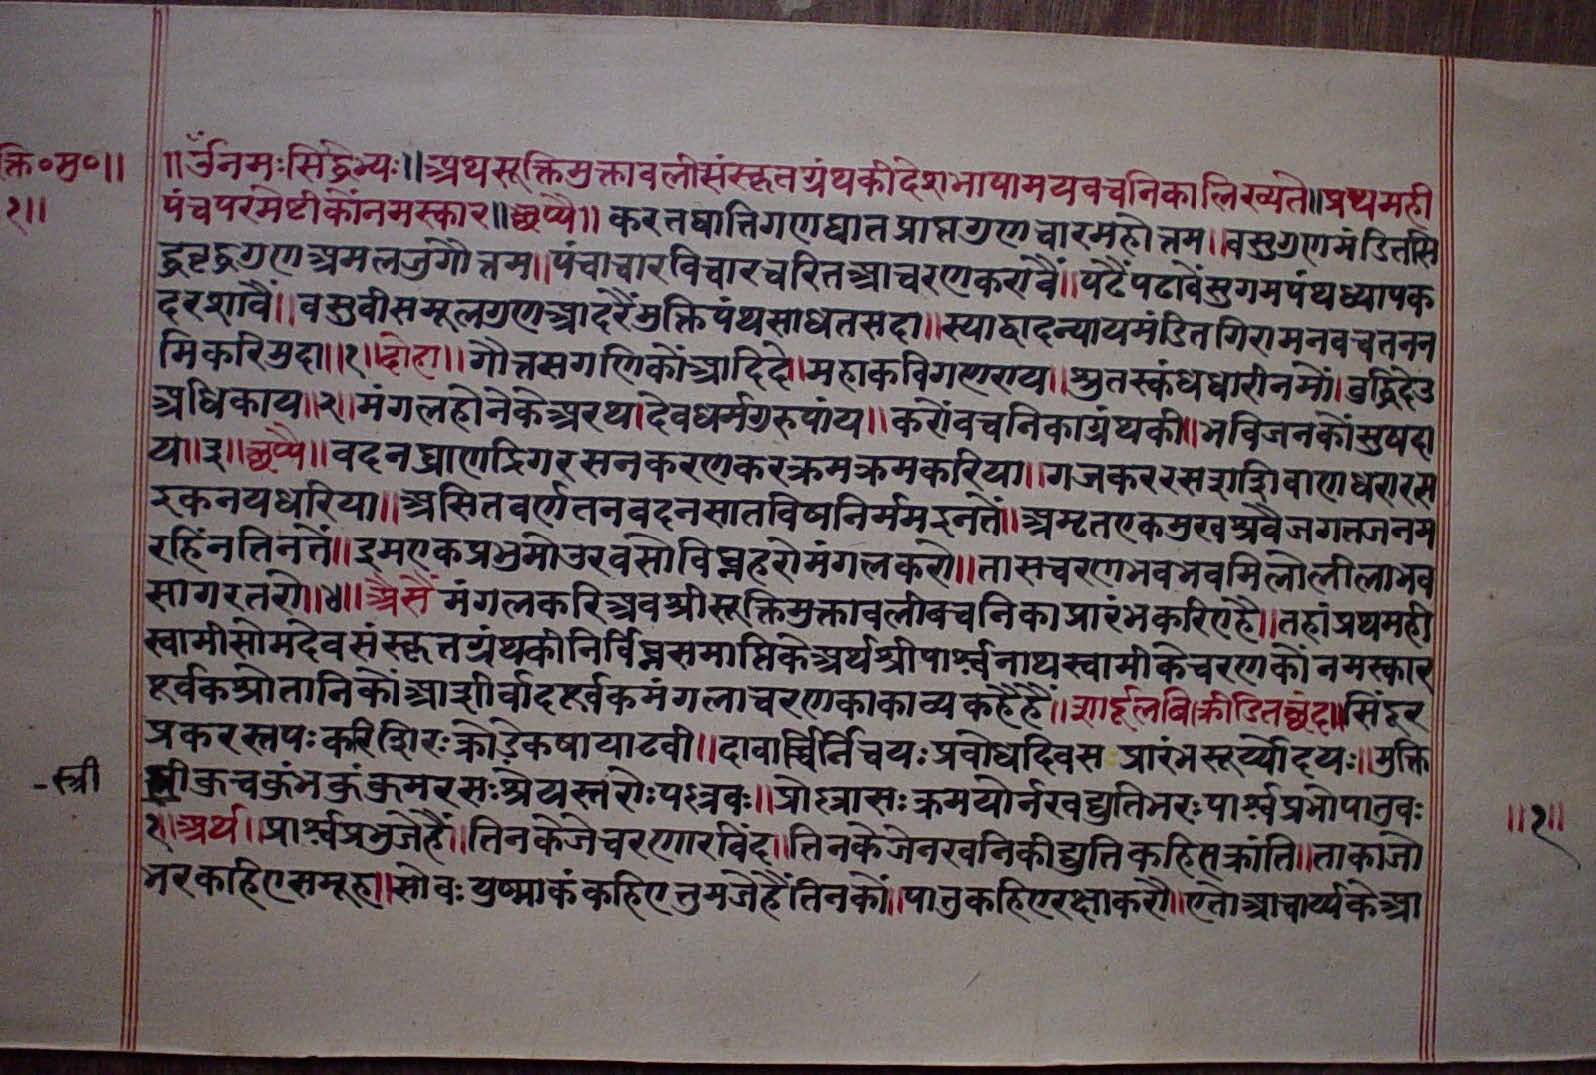 क्ति॰मु॰॥
१॥
॥ॐनमःसिद्धेभ्यः॥अथसूक्तिमुक्तावलीसंस्कृतग्रंथकीदेशभाषामयवचनिकालिख्यते॥प्रथमही
पंचपरमेष्टीकौंनमस्कार॥छप्पै॥करतघातिगणघातप्राप्तगुणचारमहोत्तम॥वसुगुणमंडितसि
द्धवृद्धगुणअमलजुगौत्तम॥पंचाचारविचारचरितआचरणकरावैं॥पढैंपढावैंसुगमपंथध्यापक
दरशावैं॥वसुवीसमूलगुणआदरैंमुक्तिपंथसाधतसदा॥स्याद्वादन्यायमंडितगिरामनवचतनन
मिकरिमुदा॥१॥दोहा॥गौत्तमगणिकौंआदिदे॥महाकविगणराय॥श्रुतस्कंधधारीनमों।बुद्धिदेउ
अधिकाय॥२॥मंगलहोनेकेअरथ।देवधर्मगुरुपांय॥करोंवचनिकाग्रंथकी॥भविजनकौंसुषदा
या॥३॥छप्पै॥वदनघ्राणद्रिगरसनकरणकरक्रमक्रमकरिया॥गजकररसशशिवाणधरारस
इकनयधरिया॥असितवर्णतनवदनसातविषनिर्ममइनतें॥अमृतएकमुखश्रवैजगतजनम
रहिंनतिनतें॥इमएकप्रभुमोउरवसोविघ्नहरोमंगलकरो॥तासचरणभवभवमिलोलीलाभव
सागरतरो॥४॥अैसैंमंगलकरिअवश्रीसूक्तिमुक्तावलीवचनिकाप्रारंभकरिएहै॥तहांप्रथमही
स्वामीसोमदेवसंस्कृतग्रंथकीनिर्विघ्नसमाप्तिकेअर्थश्रीपार्श्वनाथस्वामीकेचरणकौंनमस्कार
पूर्वकश्रोतानिकौंआशीर्वादपूर्वकमंगलाचरणकाकाव्यकहैहैं॥शार्दूलविक्रीडितछंद॥सिंदूर
प्रकरस्तपःकरिशिरःक्रोडेकषायाटवी॥दावार्च्चिर्निचयःप्रवोधदिवसप्रारंभसूर्य्योदयः॥मुक्ति
स्त्रीकुचकुंभकुंकुमरसःश्रेयस्तरोःपल्लवः॥प्रोल्लासःक्रमयोर्नखद्युतिभरःपार्श्वप्रभोपातुवः
-स्त्री
१॥अर्थ॥पार्श्वप्रभुजेहैं॥तिनकेजेचरणारविंद॥तिनकेजेनखनिकीद्युतिकहिसक्रांति॥ताकाजो
भरकहिएसमूह॥सोवःयुष्माकंकहिएतुमजेहैंतिनकौं॥पातुकहिएरक्षाकरौ॥एतोआचार्य्यकेआ
॥१॥